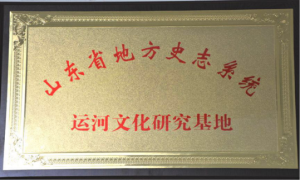 山东省地方史志系统
运河文化研究基地